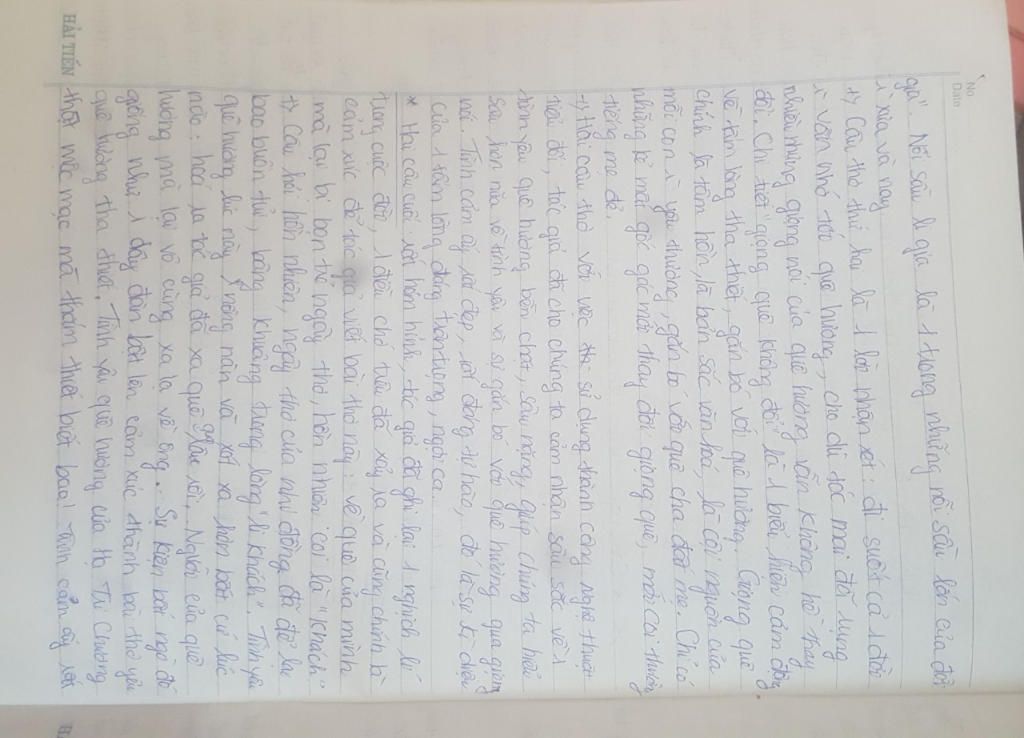 No
Date
giả". Nỗi sầu li gia là 1 trong những nỗi sầu lớn của đời
xưa và nay
+, Câu thơ thứ hai là 1 lời nhận xét: đi suốt cả 1 đời
vẫn nhớ tới quê hương, cho dù tóc mai đã rụng
nhiều nhưng giọng nói của quê hương vẫn không hề thay
đổi. Chi tiết "giọng quê không đổi" là 1 biểu hiện cảm động
về tấm lòng tha thiết, gắn bó với quê hương. Giọng quê
chính là tâm hồn, là bản sắc văn hoá, là cội nguồn của
mỗi con yêu thương, gắn bó với quê cha đất mẹ. Chỉ có
những kẻ mất gốc mới thay đổi giọng quê, mới coi thường
tiếng mẹ đẻ.
+, Hai câu thơ với việc sử dụng thành công nghệ thuật
tiểu đối, tác giả đã cho chúng ta cảm nhận sâu sắc về 1
tấm yêu quê hương bền chặt, sâu nặng, giúp chúng ta hiểu
sâu hơn nữa về tình yêu và sự gắn bó với quê hương qua giọng
nói. Tình cảm ấy rất đẹp, rất đáng tự hào, đó là sự kì diệu
của 1 tấm lòng đáng trân trọng, ngợi ca.
* Hai câu cuối rất hóm hỉnh, tác giả đã ghi lại 1 nghịch lí
trong cuộc đời, 1 điều chớ trêu đã xảy ra và cũng chính là
cảm xúc để tác giả viết bài thơ này: về quê của mình
mà lại bị bọn trẻ ngây thơ, hồn nhiên coi là "khách"
+, Câu hỏi hồn nhiên, ngây thơ của nhi đồng đã để lại
bao buồn tủi, bâng khuâng trong lòng "li khách". Tình yêu
quê hương lúc này nồng nàn và xót xa hơn bất cứ lúc
nào: hoá ra tác giả đã xa quê quá lâu rồi, Người của quê
hương mà lại vô cùng xa lạ về ông. Sự kiện bất ngờ đó
giống như 1 dây đàn bật lên cảm xúc thành bài thơ yêu
quê hương tha thiết. Tình yêu quê hương của Hạ Tri Chương
thật mộc mạc mà thắm thiết biết bao! Tình cảm ấy rất
HẢI TIẾN